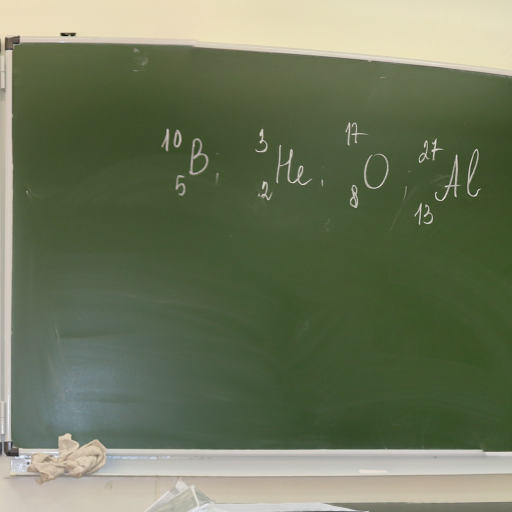 ¹⁰₅B; ³₂He; ¹⁷₈O; ²⁷₁₃Al